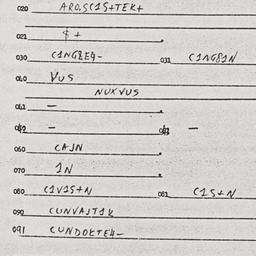 020 ARO.SC1S+TEK+
021 $ +
030 C1NG8E4- 031 C1NG81N
040 VUS
NUXVUS
041 -
042 - 043 -
060 CAJN
070 1N
080 C1V1S+N 081 C1S+N
090 CUNVAJT1K
091 CUNDOKTE4-